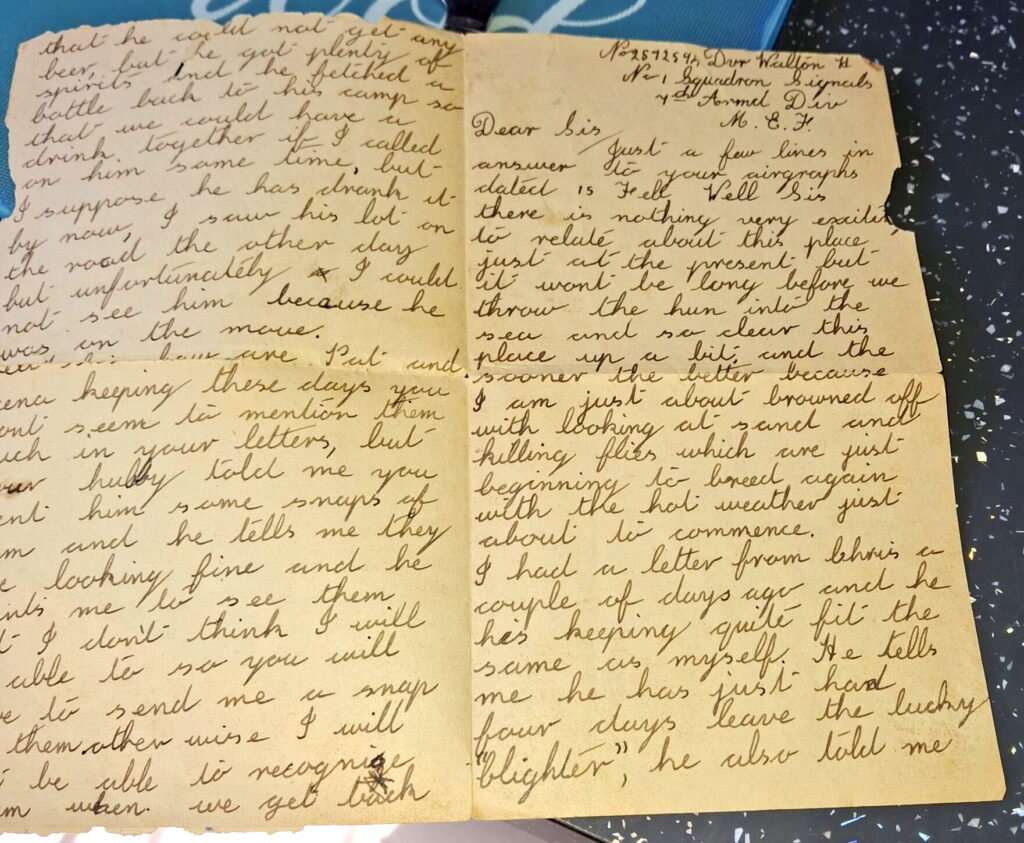 Dvr Walton H
No 1 Squadron Signals
7th Armd Div
M. E. F.
Dear Sis
Just a few lines in
answer to your airgraphs
dated 15 Feb Well Sis
there is nothing very excitin
to relate about this place,
just at the present but
it wont be long before we
throw the hun into the
sea and so clear this
place up a bit, and the
sooner the better because
I am just about browned off
with looking at sand and
killing flies which are just
beginning to breed again
with the hot weather just
about to commence.
I had a letter from Chris a
couple of days ago and he
his keeping quite fit the
same as myself. He tells
me he has just had
four days leave the lucky
"blighter", he also told me
that he could not get any
beer, but he got plenty of
spirits and he fetched a
bottle back to his camp so
that we could have a
drink together if I called
on him some time, but
I suppose he has drank it
by now, I saw his lot on
the road the other day
but unfortunately I could
not see him because he
was on the move.
how are Pat and
eena keeping these days you
ont seem to mention them
uch in your letters, but
our hubby told me you
ent him some snaps of
em and he tells me they
e looking fine and he
nts me to see them
t I don't think I will
able to so you will
e to send me a snap
them other wise I will
t be able to recognise
m when we get back